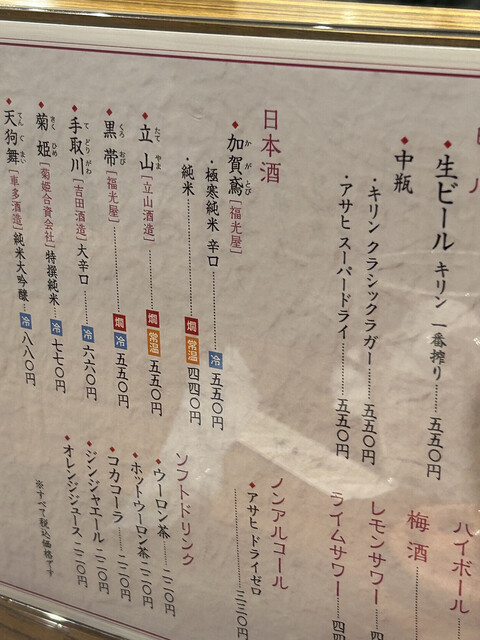 生ビール キリン 一番搾り……五五〇円
中瓶
・キリン クラシックラガー……五五〇円
・アサヒ スーパードライ……五五〇円
日本酒
加賀鳶[福光屋]
かがとび
・極寒純米 辛口……冷 五五〇円
・純米……燗 常温 四四〇円
立山[立山酒造]……燗 常温 五五〇円
たてやま
黒帯[福光屋]……燗 冷 五五〇円
くろおび
手取川[吉田酒造]大辛口……冷 六六〇円
てどりがわ
菊姫[菊姫合資会社]特撰純米…冷 七七〇円
きくひめ
天狗舞[車多酒造]純米大吟醸…冷 八八〇円
てんぐまい
ハイボール
梅酒
レモンサワー
ライムサワー
ノンアルコール
アサヒ ドライゼロ
……三三〇円
ソフトドリンク
ウーロン茶……二二〇円
ホットウーロン茶 二二〇円
コカコーラ……二二〇円
ジンジャエール 二二〇円
オレンジジュース 二二〇円
※すべて税込価格です